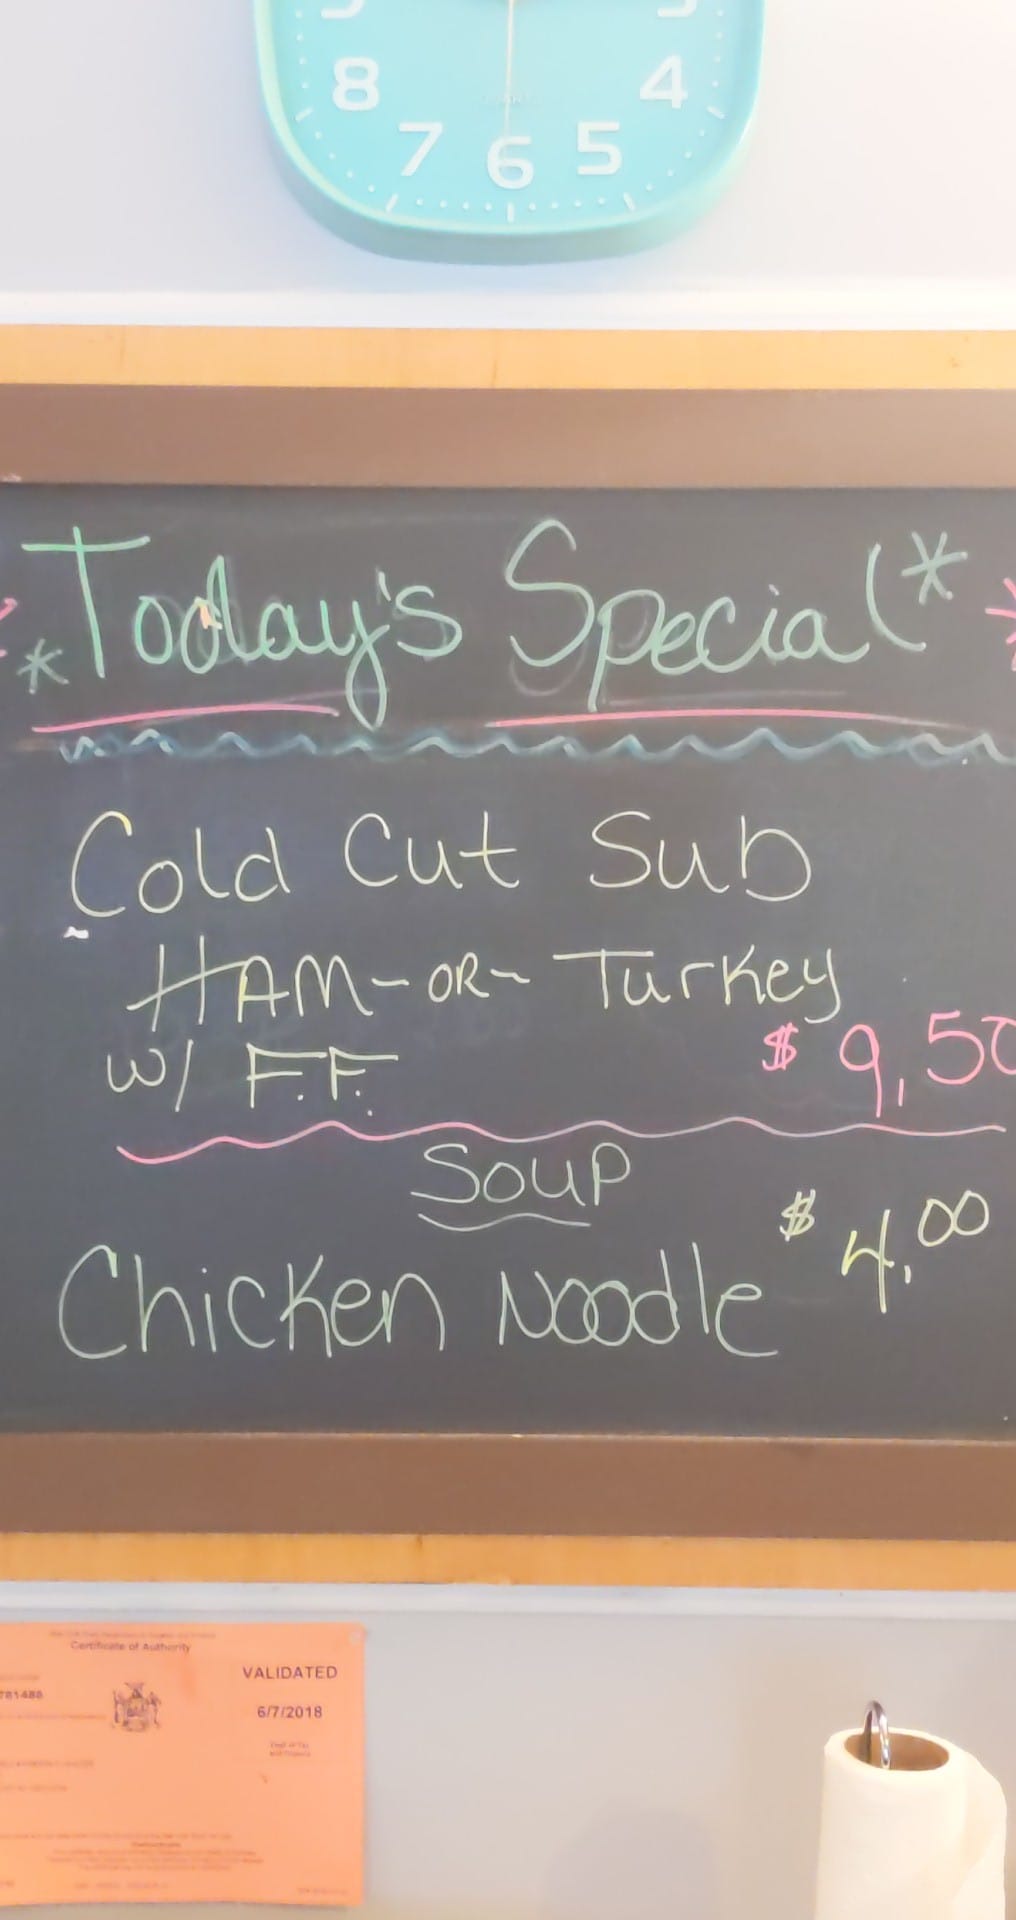 8 4
7 6 5
*Today's Special*
Cold Cut Sub
HAM-OR-Turkey
w/ F.F. $9,50
Soup
$4,00
Chicken Noodle
Certificate of Authority
VALIDATED
781488
6/7/2018
Dept of Tax
and Finance